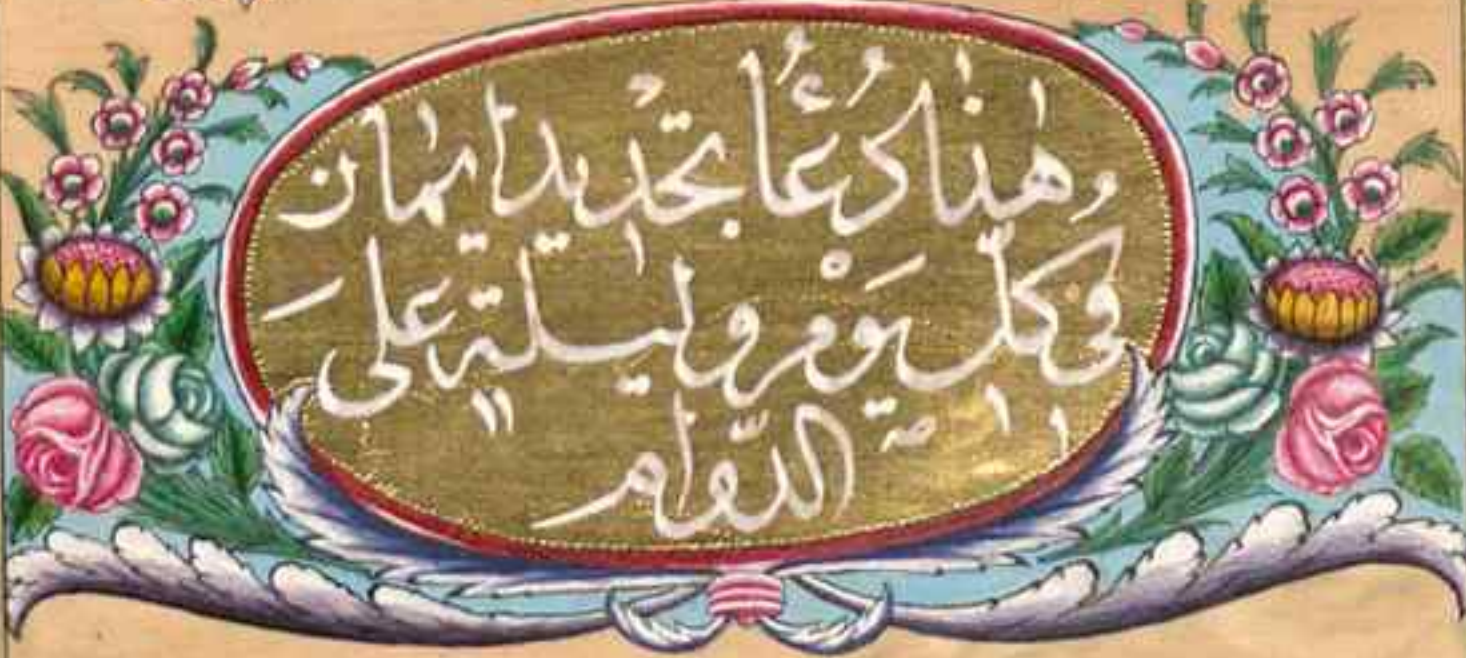 وهٰذا دُعُأُ تجْديد ايمان
فى كلِّ يَوْمٍ وليلةٍ على
الدّوام